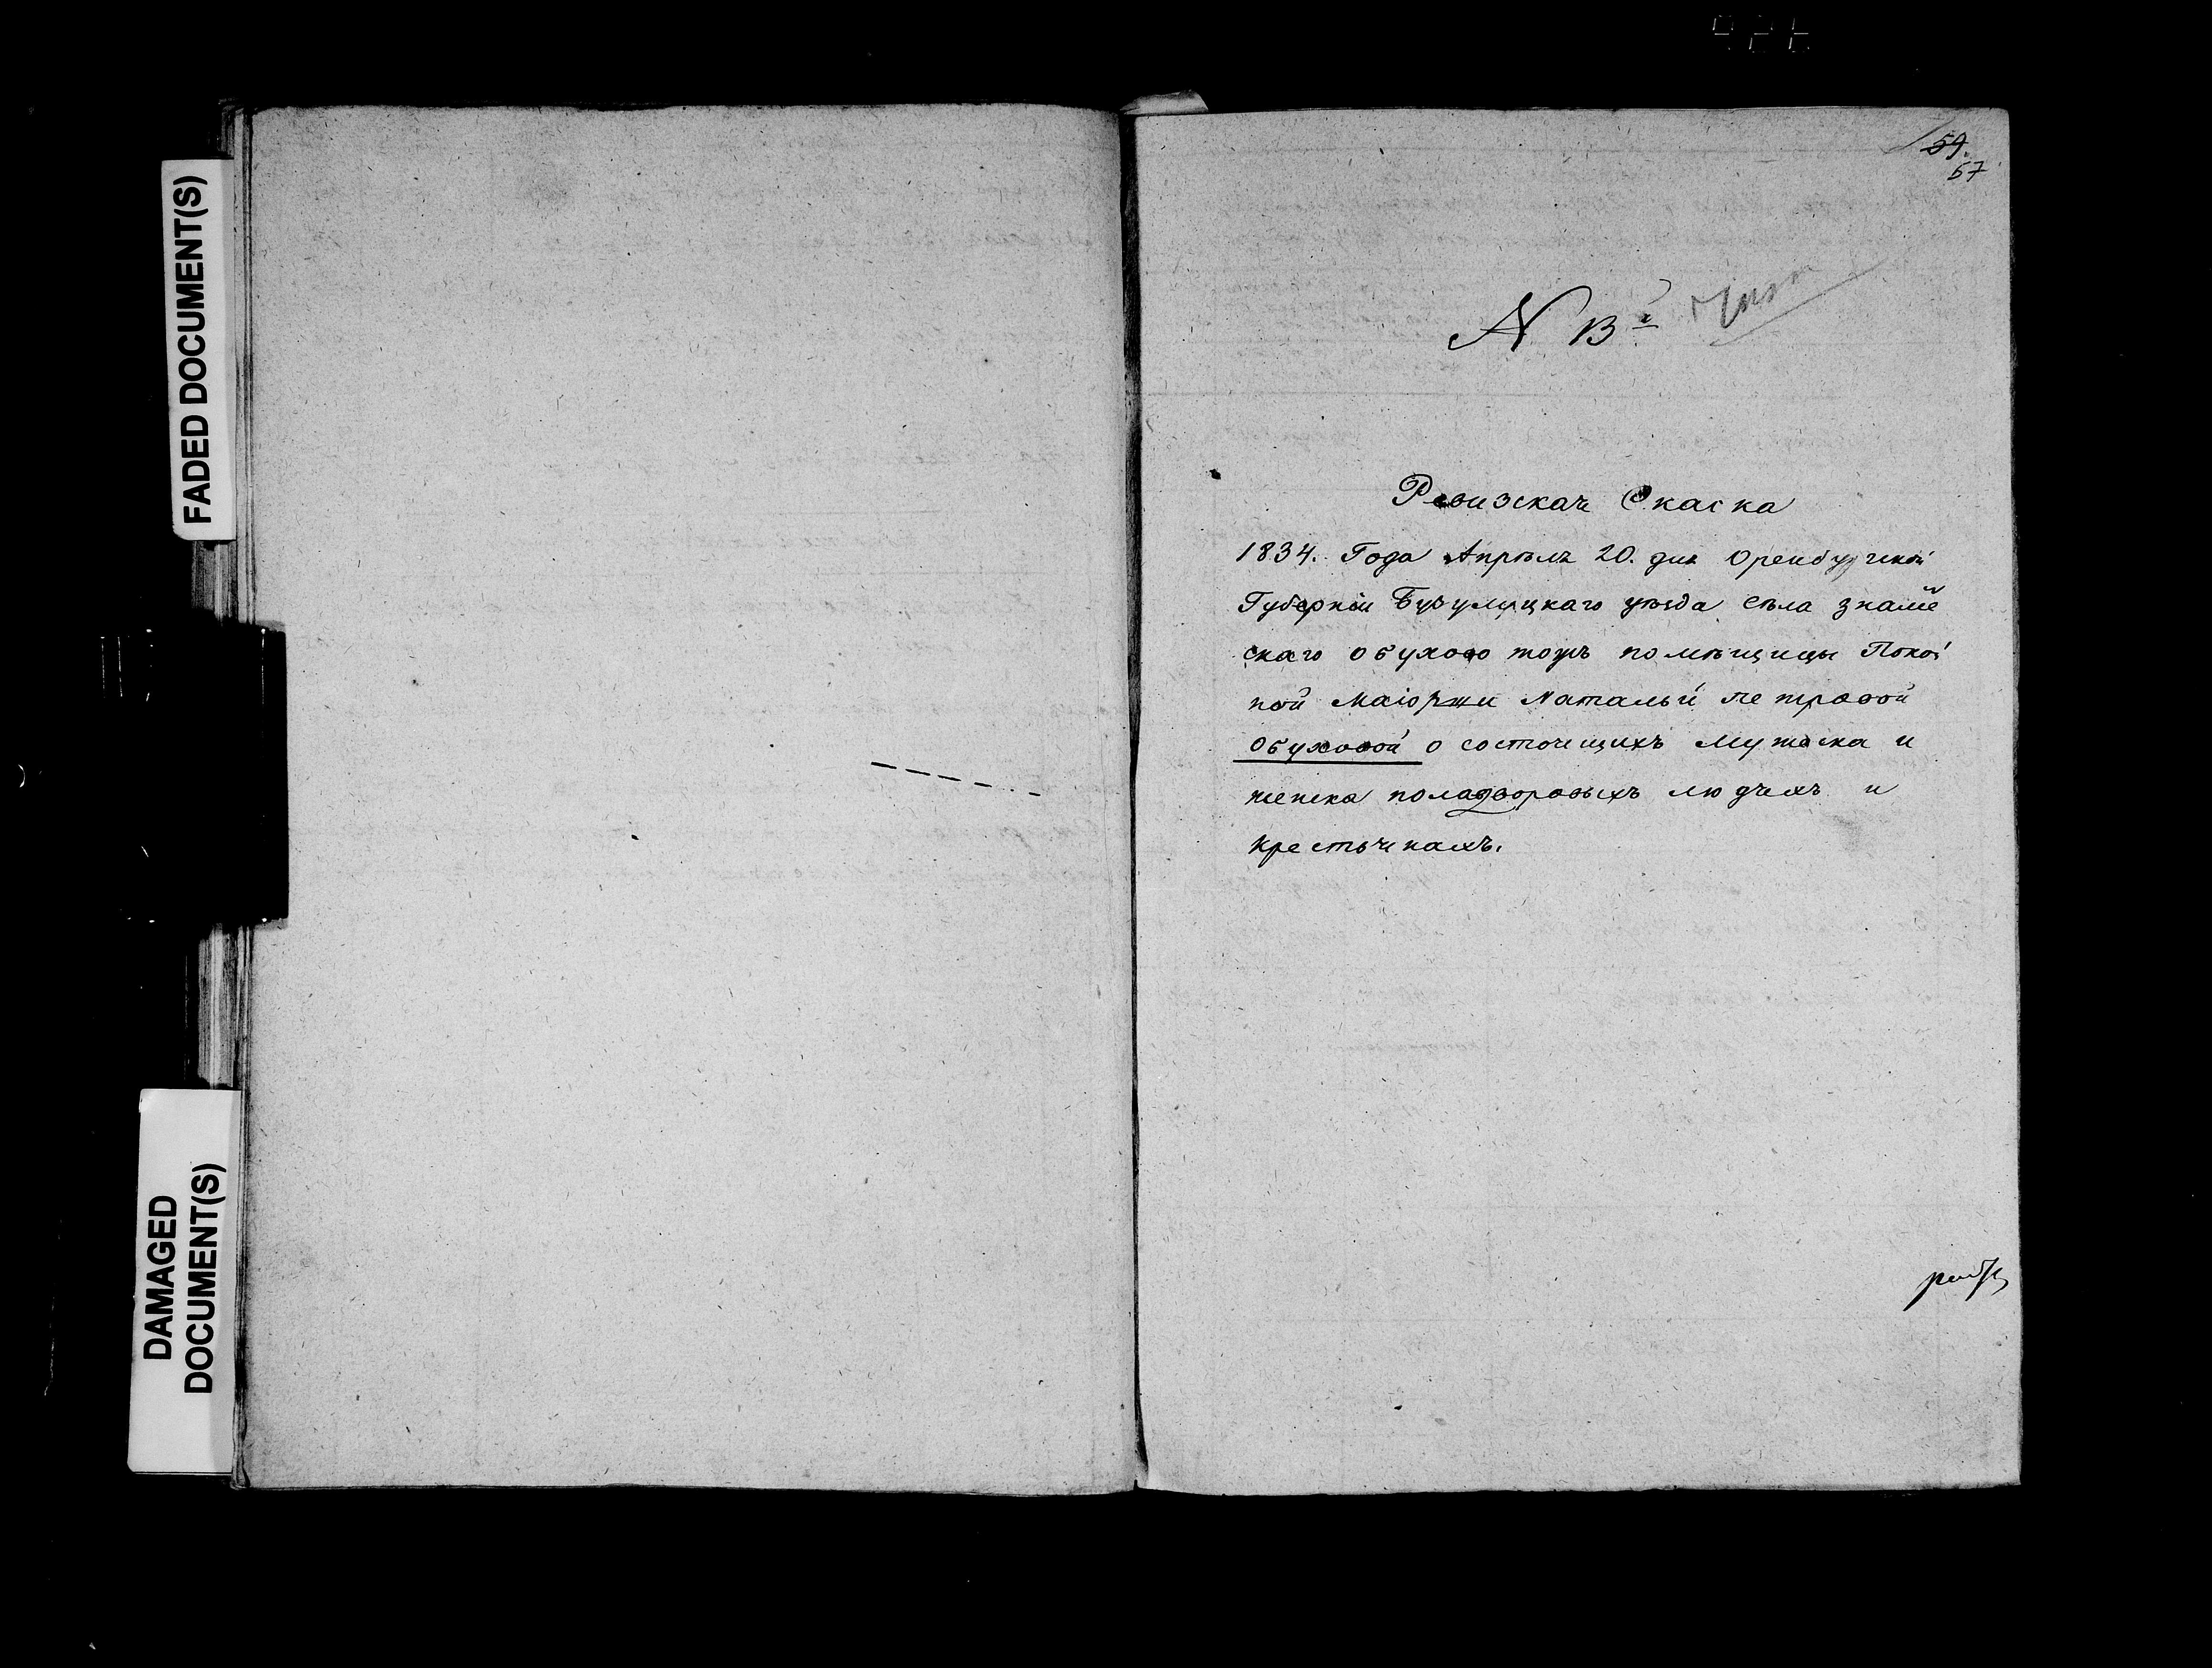 FADED DOCUMENT(S)
DAMAGED
DOCUMENT(S)
59.
57
N 13й
Ревизская Скаска
1834. Года Апрѣля 20. дня Оренбургской
Губернiи Бузулуцкаго уѣзда села знаме
скаго обухово тожъ помѣщицы Покой
ной Маiорши Натальи петровой
Обуховой о состоящихъ мужеска и
женска пола дворовыхъ людяхъ и
крестьянахъ.